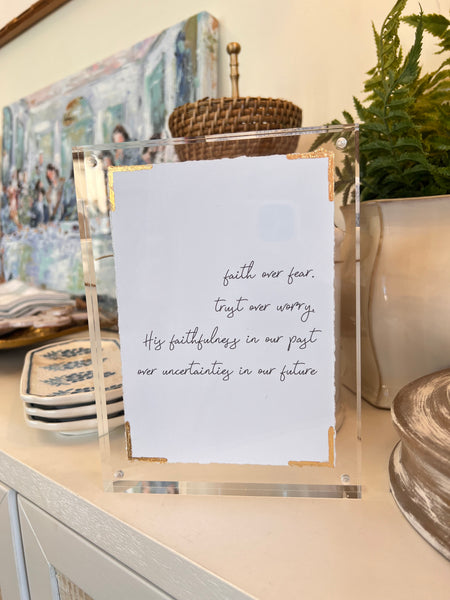 faith over fear.
trust over worry.
His faithfulness in our past
over uncertainties in our future